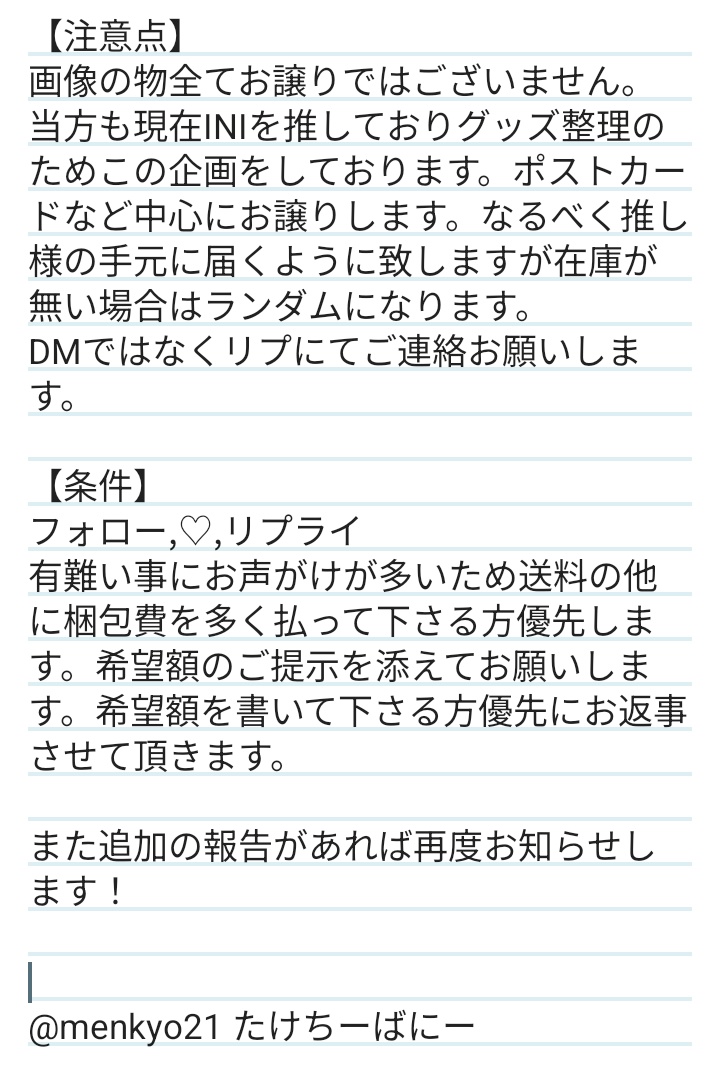 【注意点】
画像の物全てお譲りではございません。
当方も現在INIを推しておりグッズ整理の
ためこの企画をしております。ポストカー
ドなど中心にお譲りします。なるべく推し
様の手元に届くように致しますが在庫が
無い場合はランダムになります。
DMではなくリプにてご連絡お願いしま
す。
【条件】
フォロー,♡,リプライ
有難い事にお声がけが多いため送料の他
に梱包費を多く払って下さる方優先しま
す。希望額のご提示を添えてお願いしま
す。希望額を書いて下さる方優先にお返事
させて頂きます。
また追加の報告があれば再度お知らせし
ます！
@menkyo21 たけちーばにー